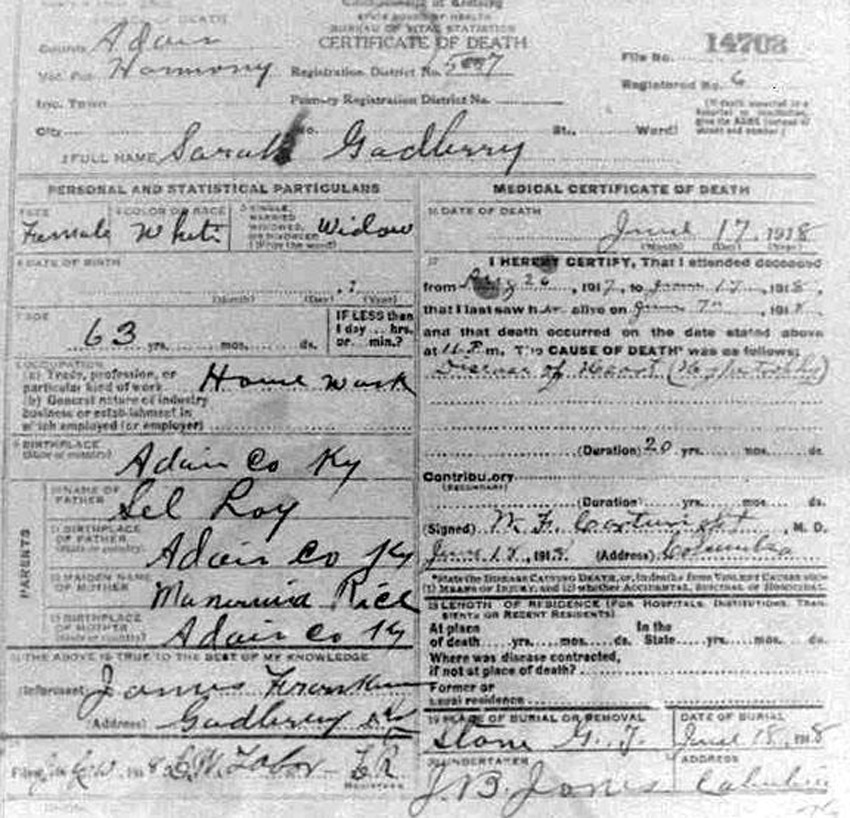 STATE BOARD OF HEALTH
BUREAU OF VITAL STATISTICS
CERTIFICATE OF DEATH
OF DEATH
County Adair
Vot. Pct. Harmony
Registration District No.
File No. 14703
Registered No. 6
Inc. Town
Primary Registration District No.
City No. St., Ward)
2 FULL NAME Sarah Gadberry
PERSONAL AND STATISTICAL PARTICULARS
SEX Female
4 COLOR OR RACE White
5 SINGLE, MARRIED WIDOWED, OR DIVORCED (Write the word) Widow
6 DATE OF BIRTH
(Month) (Day) , 1 (Year)
7 AGE
63 yrs. mos. ds.
IF LESS than 1 day ... hrs. or ... min.?
OCCUPATION
(a) Trade, profession, or particular kind of work House work
(b) General nature of industry business or establishment in which employed (or employer)
9 BIRTHPLACE (State or country) Adair Co Ky
PARENTS
10 NAME OF FATHER Sel Roy
11 BIRTHPLACE OF FATHER (State or country) Adair Co Ky
12 MAIDEN NAME OF MOTHER Rice
13 BIRTHPLACE OF MOTHER (State or country) Adair Co Ky
THE ABOVE IS TRUE TO THE BEST OF MY KNOWLEDGE
(Informant) James
(Address) Gadberry
Filed 1918 REGISTRAR
MEDICAL CERTIFICATE OF DEATH
16 DATE OF DEATH
June 17, 1918
(Month) (Day) (Year)
17 I HEREBY CERTIFY, That I attended deceased
from Aug 26, 1917, to June 17, 1918,
that I last saw her alive on June 7", 1918,
and that death occurred on the date stated above
at 11 P.m. The CAUSE OF DEATH* was as follows:
Disease of Heart (Hypertrophy)
(Duration) 20 yrs. mos. ds.
Contributory
(SECONDARY)
(Duration) yrs. mos. ds.
(Signed) W. F. Cartwright, M. D.
June 18, 1918. (Address) Columbia
*State the DISEASE CAUSING DEATH, or, in deaths from VIOLENT CAUSES state
(1) MEANS OF INJURY; and (2) whether ACCIDENTAL, SUICIDAL OR HOMICIDAL.
18 LENGTH OF RESIDENCE (FOR HOSPITALS, INSTITUTIONS, TRANSIENTS OR RECENT RESIDENTS)
At place of death yrs. mos. ds. In the State yrs. mos. ds.
Where was disease contracted,
if not at place of death?
Former or
usual residence
19 PLACE OF BURIAL OR REMOVAL
Stone G. Y.
DATE OF BURIAL
June 18, 1918
20 UNDERTAKER
J. B. Jones
ADDRESS
Columbia